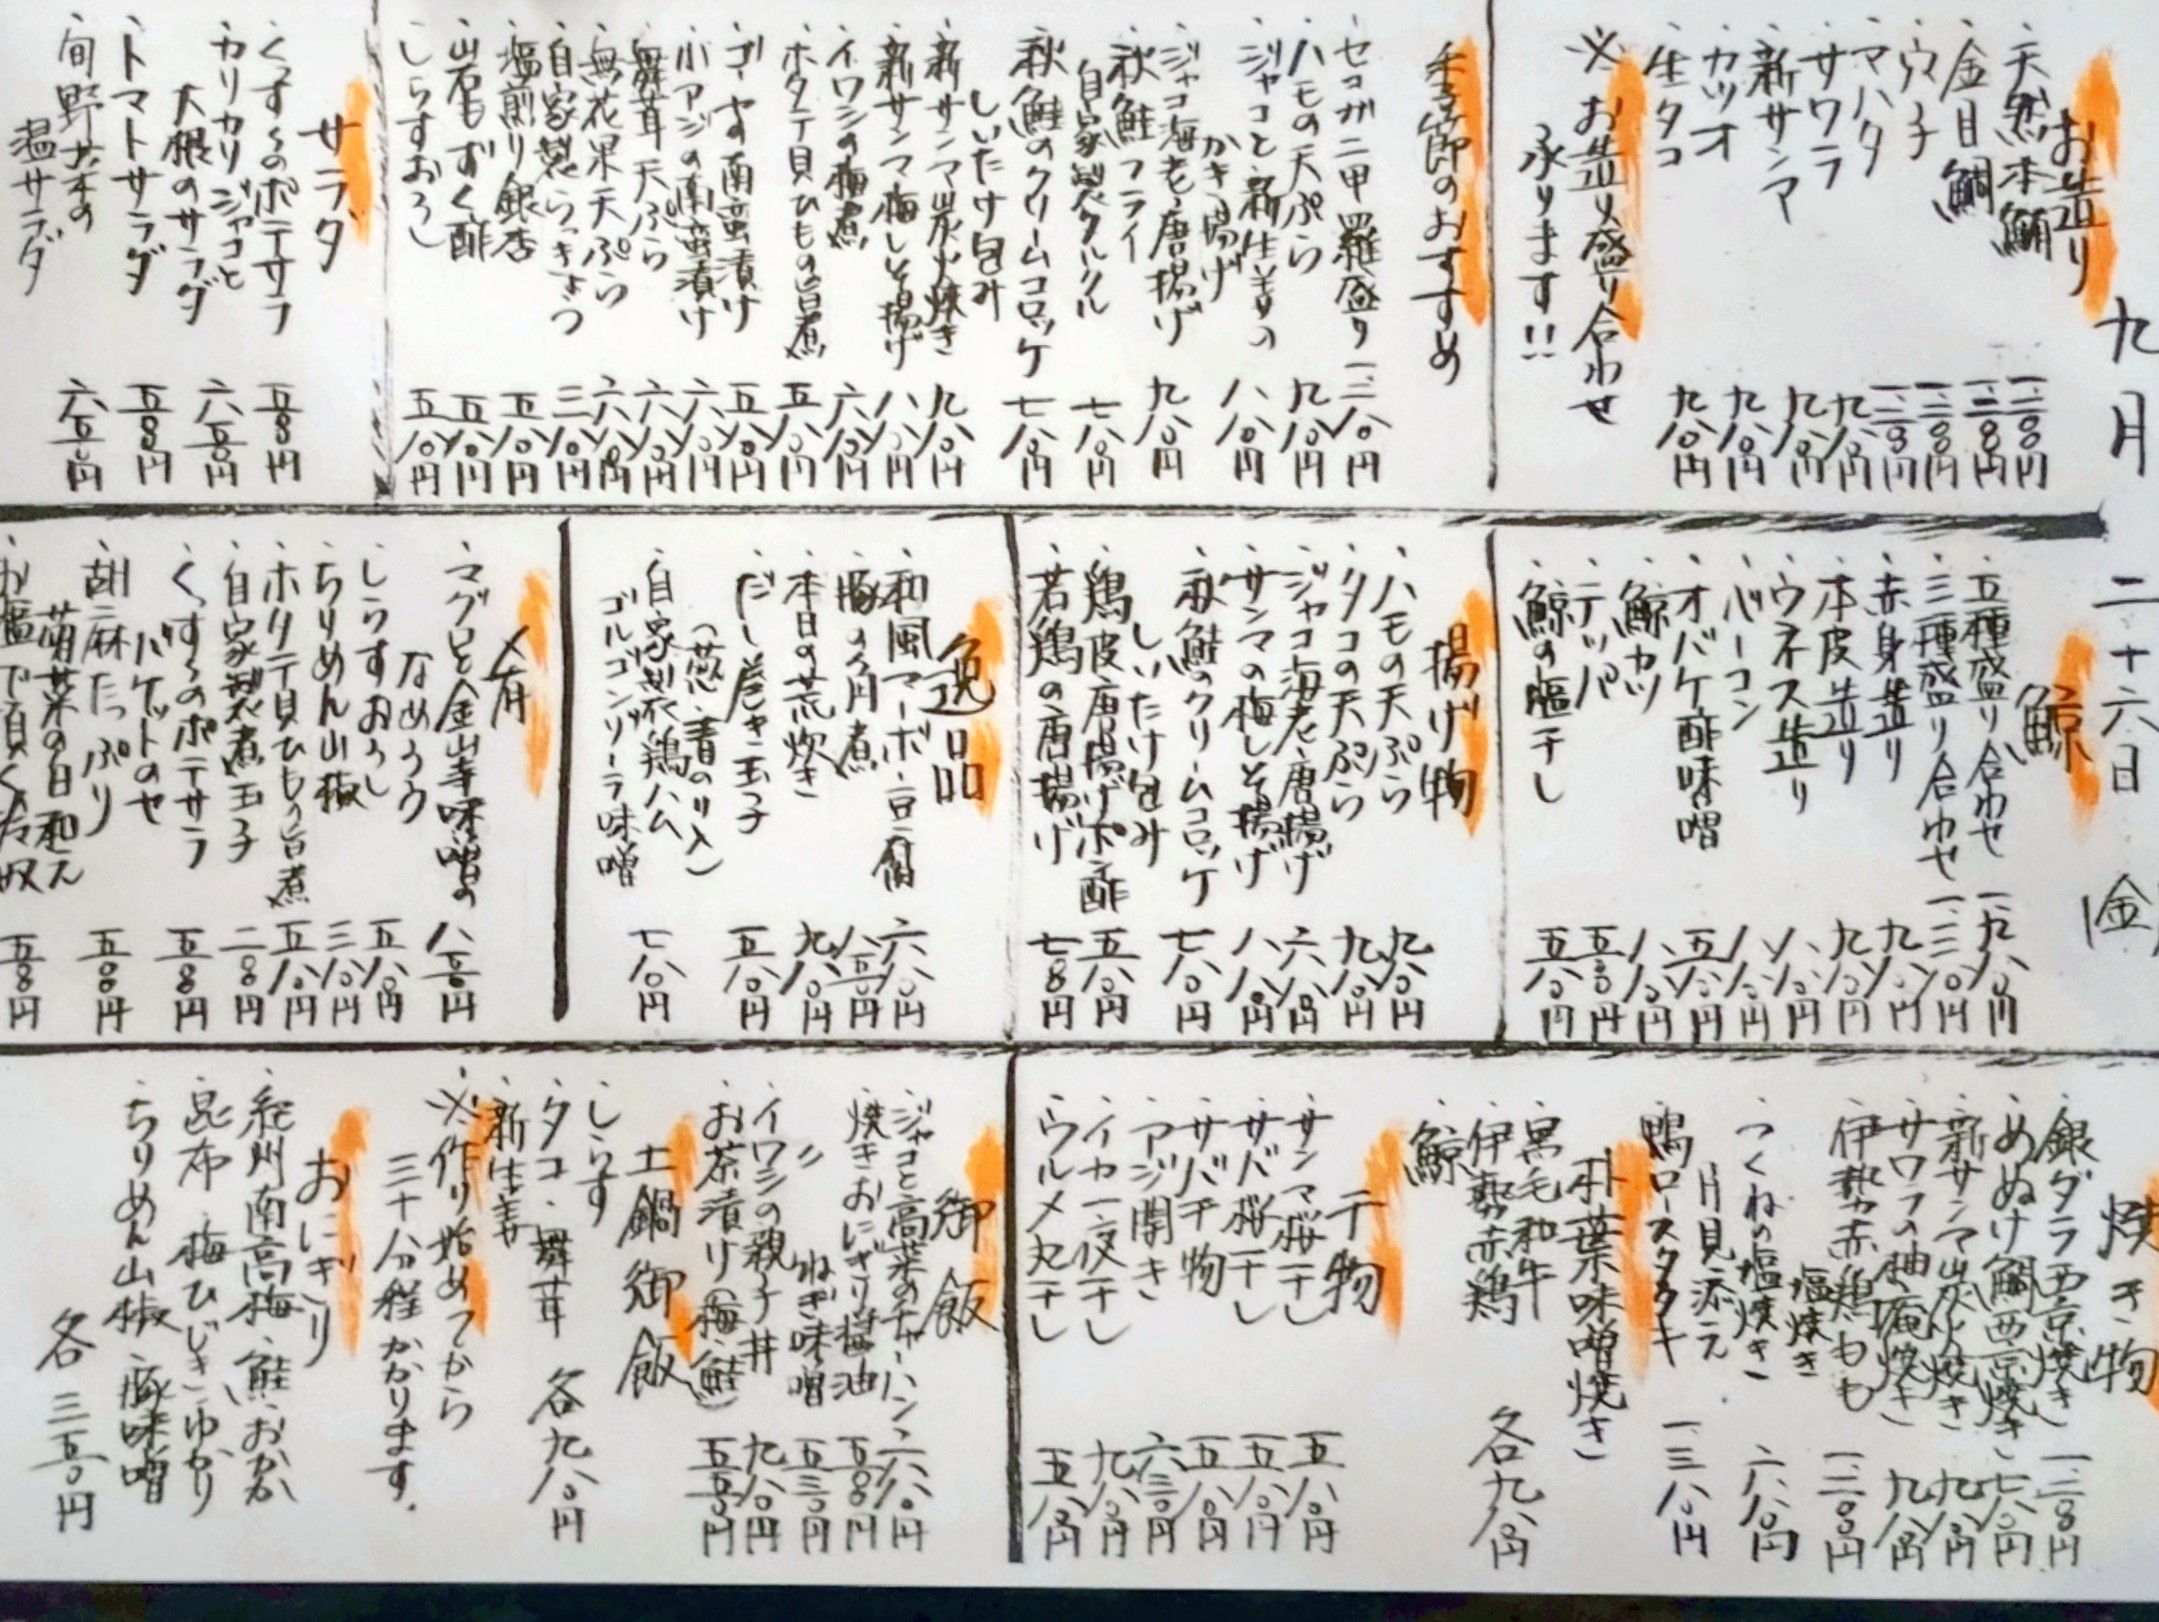 九月 二十六日 (金)
お造り
・天然本鮪 一、二〇〇円
・金目鯛 一、二〇〇円
・ウニ 一、二〇〇円
・マハタ 一、二〇〇円
・サワラ 九八〇円
・新サンマ 九八〇円
・カツオ 九八〇円
・生タコ 九八〇円
※お造り盛り合わせ
承ります!!
季節のおすすめ
・セコガニ甲羅盛り 一、三八〇円
・ハモの天ぷら 九八〇円
・ジャコと新生姜の
かき揚げ 八八〇円
・ジャコ海老唐揚げ
・秋鮭フライ 九八〇円
自家製タルタル 七八〇円
・秋鮭のクリームコロッケ
しいたけ包み 七八〇円
・新サンマ炭火焼き 九八〇円
・新サンマ梅しそ揚げ 八八〇円
・イワシの梅煮 六八〇円
・ホタテ貝ひもの旨煮 五八〇円
・ゴーヤの南蛮漬け 五八〇円
・小アジの南蛮漬け 六八〇円
・舞茸天ぷら 六八〇円
・無花果天ぷら 六八〇円
・自家製らっきょう 三八〇円
・塩煎り銀杏 五八〇円
・岩もずく酢 五八〇円
・しらすおろし 五八〇円
サラダ
・くずしのポテサラ 五八〇円
・カリカリジャコと
大根のサラダ 六五〇円
・トマトサラダ 五八〇円
・旬野菜の
温サラダ 六五〇円
鯨
・五種盛り合わせ 一、九八〇円
・三種盛り合わせ 一、三八〇円
・赤身造り 九八〇円
・本皮造り 九八〇円
・ウネス造り 八八〇円
・ベーコン 八八〇円
・オバケ酢味噌 五八〇円
・鯨カツ 八八〇円
・テッパ 五八〇円
・鯨の塩干し 五八〇円
揚げ物
・ハモの天ぷら 九八〇円
・タコの天ぷら 九八〇円
・ジャコ海老唐揚げ 六八〇円
・サンマの梅しそ揚げ 八八〇円
・秋鮭のクリームコロッケ
しいたけ包み 七八〇円
・鶏皮唐揚げポン酢 五八〇円
・若鶏の唐揚げ 七八〇円
逸品
・和風マーボー豆腐 六八〇円
・豚の角煮 八五〇円
・本日の荒炊き 九八〇円
・だし巻き玉子
(葱、青のり入) 五八〇円
・自家製蒸鶏ハム
ゴルゴンゾーラ味噌 七八〇円
肴
・マグロと金山寺味噌の
なめろう 八五〇円
・しらすおろし 五八〇円
・ちりめん山椒 三八〇円
・ホタテ貝ひもの旨煮 五八〇円
・自家製煮玉子 二八〇円
・くずしのポテサラ
バゲットのせ 五八〇円
・胡麻たっぷり
青菜の白和え 五八〇円
・お塩で頂く冷奴 五八〇円
焼き物
・銀ダラ西京焼き 一、二八〇円
・めぬけ鯛西京焼き 七八〇円
・新サンマ炭火焼き 九八〇円
・サワラの柚庵焼き 九八〇円
・伊勢赤鶏もも
塩焼き 一、二八〇円
・つくねの塩焼き
月見添え 六八〇円
・鴨ロースタタキ 一三八〇円
朴葉味噌焼き
・黒毛和牛
・伊勢赤鶏
・鯨 各九八〇円
干物
・サンマ桜干し 五八〇円
・サバ桜干し 五八〇円
・サバ干物 五八〇円
・アジ開き 六三〇円
・イカ一夜干し 九八〇円
・ウルメ丸干し 五八〇円
御飯
・ジャコと高菜のチャーハン 六八〇円
・焼きおにぎり醤油 五〇〇円
・〃 ねぎ味噌 五三〇円
・イワシの親子丼 九八〇円
・お茶漬け(梅、鮭) 五五〇円
土鍋御飯
・しらす
・タコ・舞茸 各九八〇円
・新生姜
・※作り始めてから
三十分程かかります。
おにぎり
・紀州南高梅、鮭、おかか
・昆布、梅ひじき、ゆかり
・ちりめん山椒、豚味噌
各三五〇円